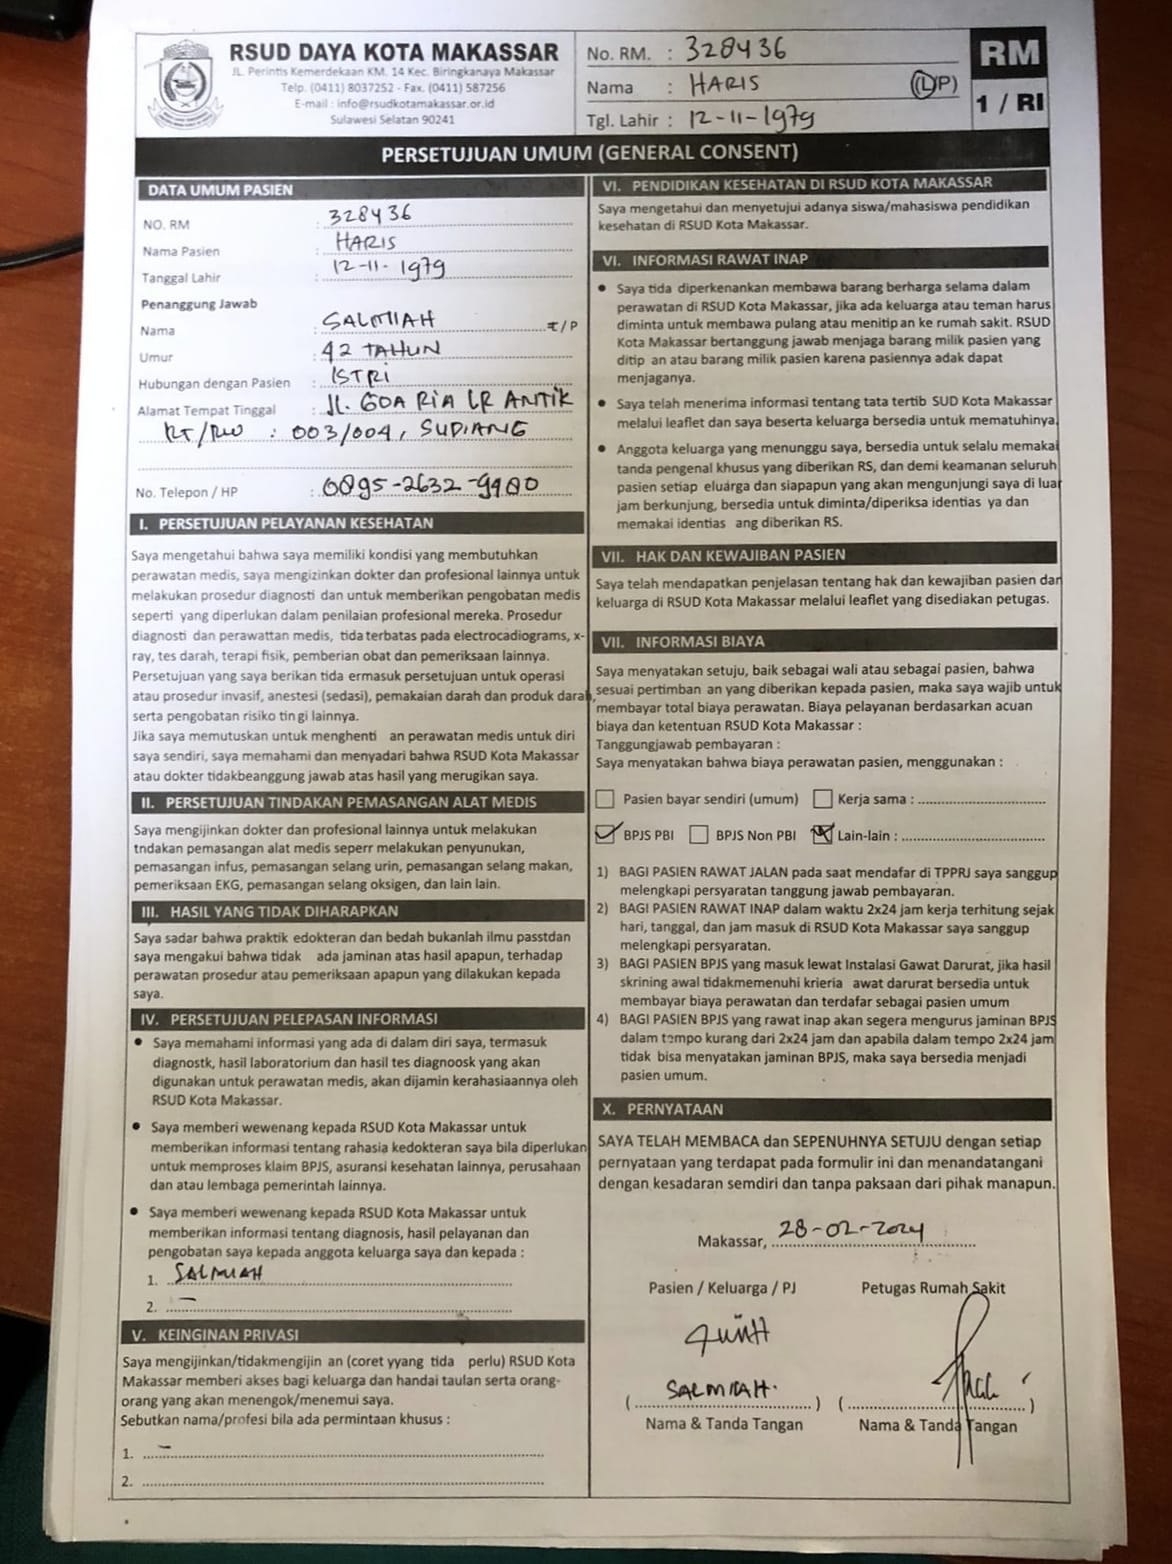 RSUD DAYA KOTA MAKASSAR
JL. Perintis Kemerdekaan KM. 14 Kec. Biringkanaya Makassar
Telp. (0411) 8037252 - Fax. (0411) 587256
E-mail : info@rsudkotamakassar.or.id
Sulawesi Selatan 90241
No. RM. : 328436
Nama : HARIS (L/P)
Tgl. Lahir : 12-11-1979
RM
1 / RI
PERSETUJUAN UMUM (GENERAL CONSENT)
DATA UMUM PASIEN
NO. RM : 328436
Nama Pasien : HARIS
Tanggal Lahir : 12-11-1979
Penanggung Jawab
Nama : SALMIAH L/P
Umur : 42 TAHUN
Hubungan dengan Pasien : ISTRI
Alamat Tempat Tinggal : Jl. GOA RIA LR ANTIK
RT/RW : 003/004, SUDIANG
No. Telepon / HP :
I. PERSETUJUAN PELAYANAN KESEHATAN
Saya mengetahui bahwa saya memiliki kondisi yang membutuhkan
perawatan medis, saya mengizinkan dokter dan profesional lainnya untuk
melakukan prosedur diagnosti dan untuk memberikan pengobatan medis
seperti yang diperlukan dalam penilaian profesional mereka. Prosedur
diagnosti dan perawattan medis, tida terbatas pada electrocadiograms, x-
ray, tes darah, terapi fisik, pemberian obat dan pemeriksaan lainnya.
Persetujuan yang saya berikan tida ermasuk persetujuan untuk operasi
atau prosedur invasif, anestesi (sedasi), pemakaian darah dan produk darah,
serta pengobatan risiko tin gi lainnya.
Jika saya memutuskan untuk menghenti an perawatan medis untuk diri
saya sendiri, saya memahami dan menyadari bahwa RSUD Kota Makassar
atau dokter tidakbeanggung jawab atas hasil yang merugikan saya.
II. PERSETUJUAN TINDAKAN PEMASANGAN ALAT MEDIS
Saya mengijinkan dokter dan profesional lainnya untuk melakukan
tndakan pemasangan alat medis seperr melakukan penyunukan,
pemasangan infus, pemasangan selang urin, pemasangan selang makan,
pemeriksaan EKG, pemasangan selang oksigen, dan lain lain.
III. HASIL YANG TIDAK DIHARAPKAN
Saya sadar bahwa praktik edokteran dan bedah bukanlah ilmu passtdan
saya mengakui bahwa tidak ada jaminan atas hasil apapun, terhadap
perawatan prosedur atau pemeriksaan apapun yang dilakukan kepada
saya.
IV. PERSETUJUAN PELEPASAN INFORMASI
• Saya memahami informasi yang ada di dalam diri saya, termasuk
diagnostk, hasil laboratorium dan hasil tes diagnoosk yang akan
digunakan untuk perawatan medis, akan dijamin kerahasiaannya oleh
RSUD Kota Makassar.
• Saya memberi wewenang kepada RSUD Kota Makassar untuk
memberikan informasi tentang rahasia kedokteran saya bila diperlukan
untuk memproses klaim BPJS, asuransi kesehatan lainnya, perusahaan
dan atau lembaga pemerintah lainnya.
• Saya memberi wewenang kepada RSUD Kota Makassar untuk
memberikan informasi tentang diagnosis, hasil pelayanan dan
pengobatan saya kepada anggota keluarga saya dan kepada :
1. SALMIAH
2. –
V. KEINGINAN PRIVASI
Saya mengijinkan/tidakmengijin an (coret yyang tida perlu) RSUD Kota
Makassar memberi akses bagi keluarga dan handai taulan serta orang-
orang yang akan menengok/menemui saya.
Sebutkan nama/profesi bila ada permintaan khusus :
1. –
2.
VI. PENDIDIKAN KESEHATAN DI RSUD KOTA MAKASSAR
Saya mengetahui dan menyetujui adanya siswa/mahasiswa pendidikan
kesehatan di RSUD Kota Makassar.
VI. INFORMASI RAWAT INAP
• Saya tida diperkenankan membawa barang berharga selama dalam
perawatan di RSUD Kota Makassar, jika ada keluarga atau teman harus
diminta untuk membawa pulang atau menitip an ke rumah sakit. RSUD
Kota Makassar bertanggung jawab menjaga barang milik pasien yang
ditip an atau barang milik pasien karena pasiennya adak dapat
menjaganya.
• Saya telah menerima informasi tentang tata tertib SUD Kota Makassar
melalui leaflet dan saya beserta keluarga bersedia untuk mematuhinya.
• Anggota keluarga yang menunggu saya, bersedia untuk selalu memakai
tanda pengenal khusus yang diberikan RS, dan demi keamanan seluruh
pasien setiap eluarga dan siapapun yang akan mengunjungi saya di luar
jam berkunjung, bersedia untuk diminta/diperiksa identias ya dan
memakai identias ang diberikan RS.
VII. HAK DAN KEWAJIBAN PASIEN
Saya telah mendapatkan penjelasan tentang hak dan kewajiban pasien dan
keluarga di RSUD Kota Makassar melalui leaflet yang disediakan petugas.
VII. INFORMASI BIAYA
Saya menyatakan setuju, baik sebagai wali atau sebagai pasien, bahwa
sesuai pertimban an yang diberikan kepada pasien, maka saya wajib untuk
membayar total biaya perawatan. Biaya pelayanan berdasarkan acuan
biaya dan ketentuan RSUD Kota Makassar :
Tanggungjawab pembayaran :
Saya menyatakan bahwa biaya perawatan pasien, menggunakan :
Pasien bayar sendiri (umum) Kerja sama :
BPJS PBI BPJS Non PBI Lain-lain :
1) BAGI PASIEN RAWAT JALAN pada saat mendafar di TPPRJ saya sanggup
melengkapi persyaratan tanggung jawab pembayaran.
2) BAGI PASIEN RAWAT INAP dalam waktu 2x24 jam kerja terhitung sejak
hari, tanggal, dan jam masuk di RSUD Kota Makassar saya sanggup
melengkapi persyaratan.
3) BAGI PASIEN BPJS yang masuk lewat Instalasi Gawat Darurat, jika hasil
skrining awal tidakmemenuhi krieria awat darurat bersedia untuk
membayar biaya perawatan dan terdafar sebagai pasien umum
4) BAGI PASIEN BPJS yang rawat inap akan segera mengurus jaminan BPJS
dalam tempo kurang dari 2x24 jam dan apabila dalam tempo 2x24 jam
tidak bisa menyatakan jaminan BPJS, maka saya bersedia menjadi
pasien umum.
X. PERNYATAAN
SAYA TELAH MEMBACA dan SEPENUHNYA SETUJU dengan setiap
pernyataan yang terdapat pada formulir ini dan menandatangani
dengan kesadaran semdiri dan tanpa paksaan dari pihak manapun.
Makassar, 28-02-2024
Pasien / Keluarga / PJ Petugas Rumah Sakit
( SALMIAH. ) ( )
Nama & Tanda Tangan Nama & Tanda Tangan